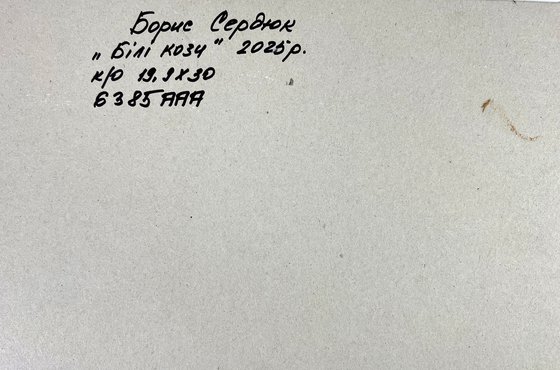 Борис Сердюк
„Білі кози" 2025р.
к/о 19,9х30
6385ААА